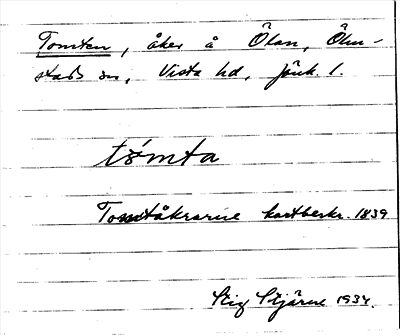 Tomten, åker å Ölan, Ölm-
stads sn, Vista hd, Jönk. l.
tòmta
Tomtåkrarne kartbeskr. 1839
Stig Stjärne 1934.